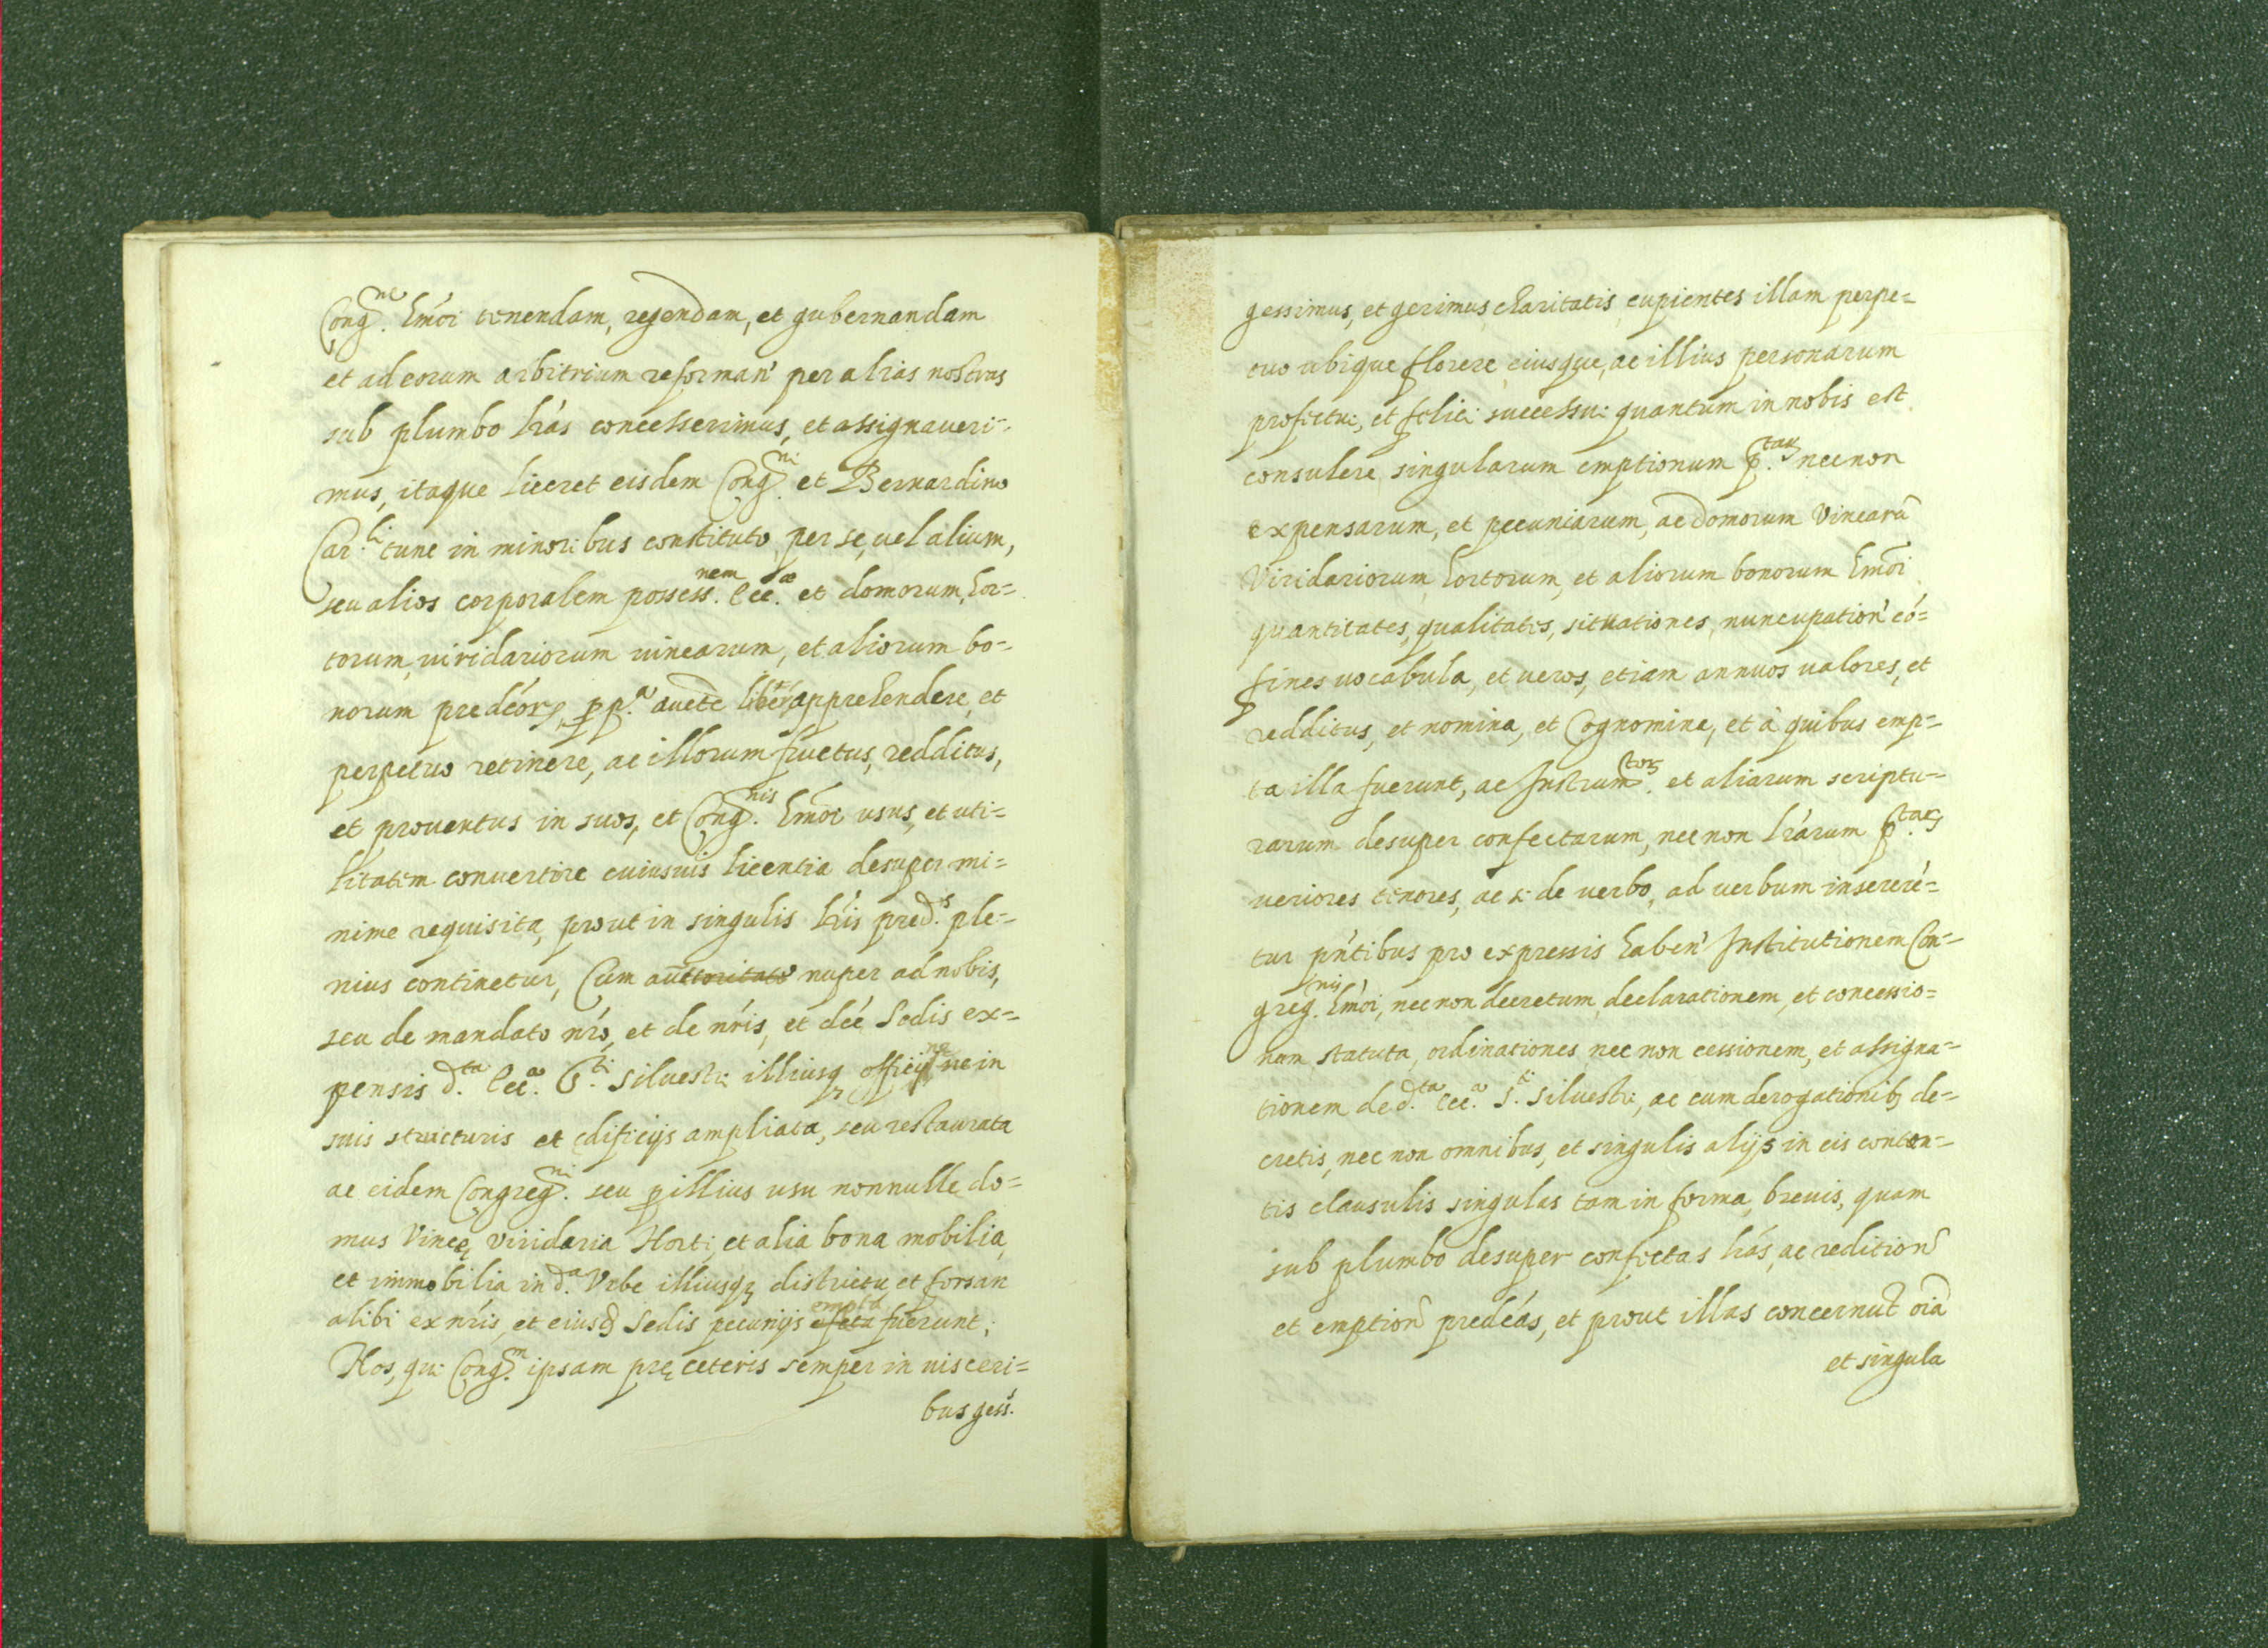 Cong.ne hmói tenendam, regendam, et gubernandam
et ad eorum arbitrium reforman' per alias nostras
sub plumbo lrás concesserimus, et assignaueri-
mus, itaque liceret eisdem Cong.ni et Bernardino
Car.li tunc in minoribus constituto, per se, uel alium,
seu alios corporalem possess.nem Ecc.æ et domorum, hor=
torum, uiridariorum uinearum, et aliorum bo-
norum predéorꝝ ꝓp.a aucte libere apprehendere, et
perpetuo retinere, ac illorum fructus, redditus,
et prouentus in suos, et Cong.nis hmoi usus, et uti=
litatem conuertere cuiusuis licentia desuper mi=
nime requisita, prout in singulis lris pred.is ple-
nius continetur, Cum auctoritate nuper ad nobis,
seu de mandato nró, et de nrís, et deé Sedis ex=
pensis d.ta Ecc.a S.ti Siluestri illiusq officij ne in
suis structuris et edificijs ampliata, seu restaurata
ac eidem Congreg.ni seu ꝓ illius usu nonnulle do=
mus Vineę, viridaria Horti, et alia bona mobilia,
et immobilia in d.a Vrbe illiusqꝫ districtu, et forsan
alibi ex nrís, et eiusd Sedis pecunijs empta fuerunt;
Nos, qui Cong.m ipsam pręceteris semper in uisceri=
bus gess.
gessimus, et gerimus charitatis cupientes illam perpe=
tuo ubique florere, eiusque, ac illius personarum
profectui, et felici successui quantum in nobis est
consulere, singularum emptionum p.tarꝝ necnon
expensarum, et pecuniarum, ac domorum Vinearū
Viridariorum, hortorum, et aliorum bonorum hmoi
quantitates, qualitates, situationes, nuncupation' có=
fines uocabula, et ueros, etiam annuos ualores, et
redditus, et nomina, et Cognomina, et à quibus emp=
ta illa fuerunt, ac Instrum.torꝝ et aliarum scriptu=
rarum desuper confectarum, nec non lrárum p.tarꝝ
ueriores tenores, ac si de uerbo, ad uerbum inseré=
tur pn'tibus pro expressis haben' Institutionem Con=
greg.nis hmòi, nec non decretum, declarationem, et concessio=
nem statuta, ordinationes nec non cessionem, et assigna=
tionem de d.ta Ecc.a S.ti Siluestri, ac cum derogationibꝫ de=
cretis, nec non omnibus, et singulis alijs in eis conten=
tis clausulis singulas tam in forma breuis, quam
sub plumbo desuper confectas lrás, ac redition'
et emption' predéas, et prout illas concernut oiā
et singula